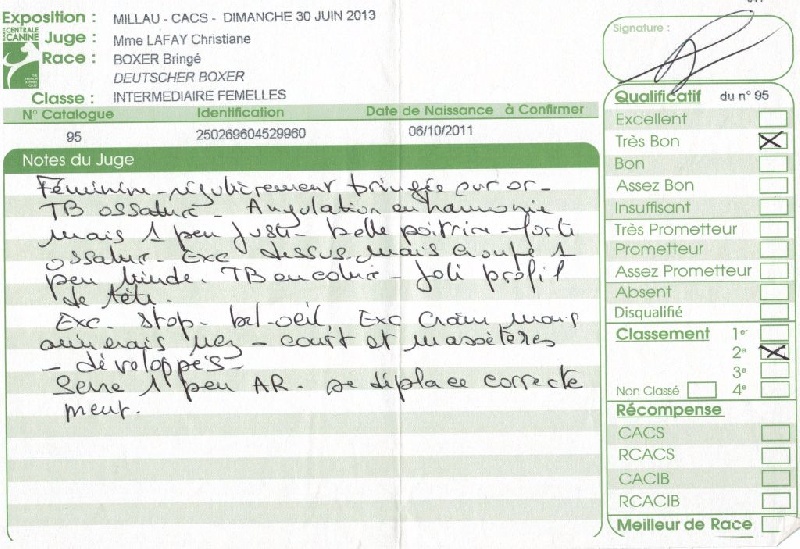 Exposition : MILLAU - CACS - DIMANCHE 30 JUIN 2013
CENTRALE
CANINE
Juge : Mme LAFAY Christiane
Race : BOXER Bringé
DEUTSCHER BOXER
Classe : INTERMEDIAIRE FEMELLES
N° Catalogue Identification Date de Naissance à Confirmer
95 250269604529960 06/10/2011
Notes du Juge
Féminine - régulièrement bringée sur or -
TB ossature - Angulation en harmonie
mais 1 peu juste - belle poitrine - forte
ossature - Exc dessus mais croupe 1
peu . TB encolure - Joli profil
de tête.
Exc. stop - bel oeil, Exc crâne mais
aimerais nez - court et massétères
- développés -
Serre 1 peu AR. se déplace correcte
ment.
Signature :
Qualificatif du n° 95
Excellent
Très Bon
Bon
Assez Bon
Insuffisant
Très Prometteur
Prometteur
Assez Prometteur
Absent
Disqualifié
Classement 1e
2e
3e
Non Classé 4e
Récompense
CACS
RCACS
CACIB
RCACIB
Meilleur de Race